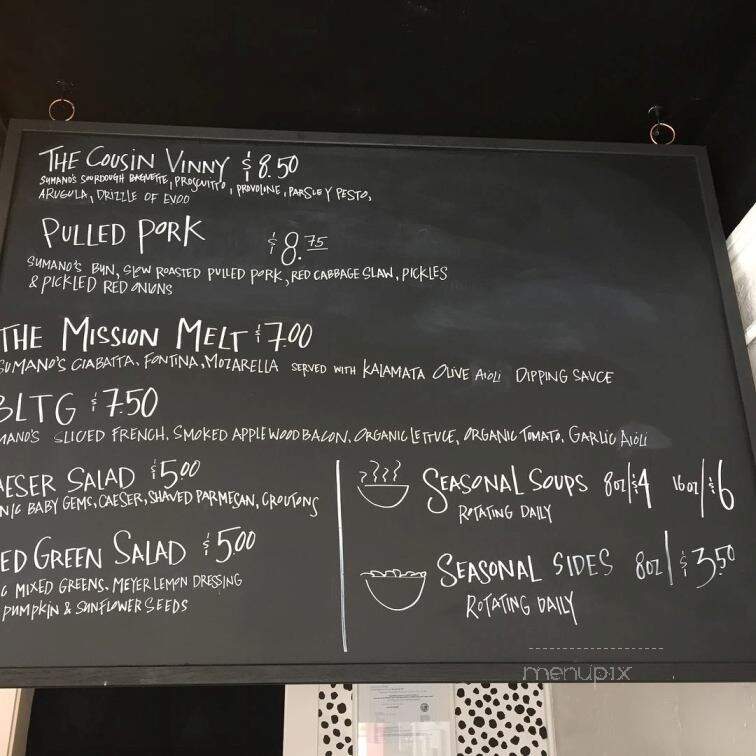 THE COUSIN VINNY $8.50
SUMANO'S SOURDOUGH BAGUETTE, PROSCUITTO, PROVOLONE, PARSLEY PESTO,
ARUGULA, DRIZZLE OF EVOO
PULLED PORK $8.75
SUMANO'S BUN, SLOW ROASTED PULLED PORK, RED CABBAGE SLAW, PICKLES
& PICKLED RED ONIONS
THE MISSION MELT $7.00
SUMANO'S CIABATTA, FONTINA, MOZARELLA SERVED WITH KALAMATA OLIVE AIOLI DIPPING SAUCE
BLTG $7.50
MANO'S SLICED FRENCH, SMOKED APPLEWOOD BACON, ORGANIC LETTUCE, ORGANIC TOMATO, GARLIC AIOLI
AESER SALAD $5.00
NIC BABY GEMS, CAESER, SHAVED PARMESAN, CROUTONS
ED GREEN SALAD $5.00
C MIXED GREENS, MEYER LEMON DRESSING
PUMPKIN & SUNFLOWER SEEDS
SEASONAL SOUPS 8oz/$4 16oz/$6
ROTATING DAILY
SEASONAL SIDES 8oz/$3.50
ROTATING DAILY
menupix